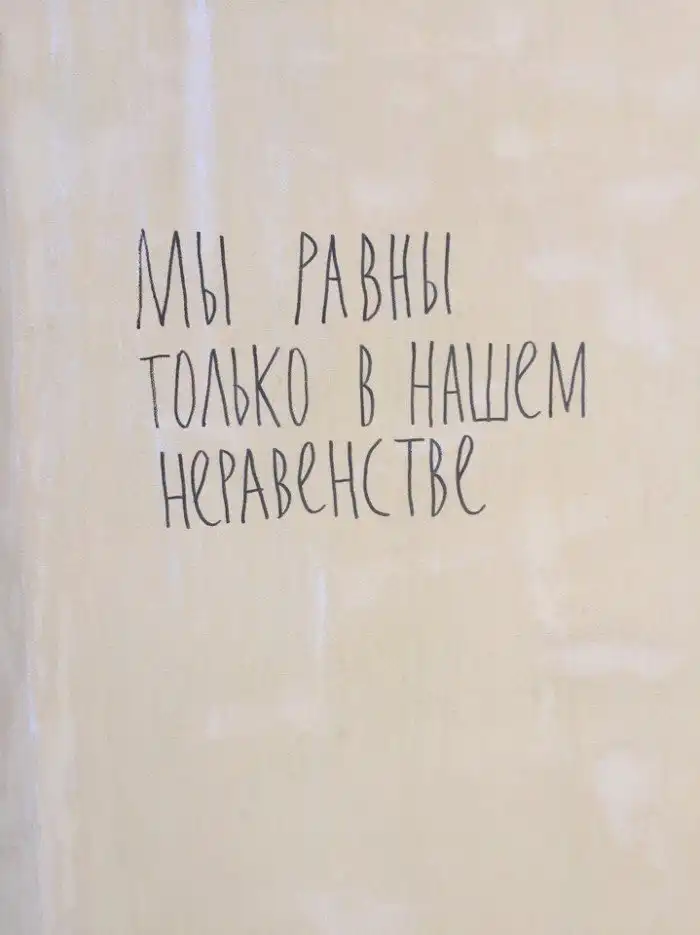 МЫ РАВНЫ
ТОЛЬКО В НАШЕМ
НЕРАВЕНСТВЕ